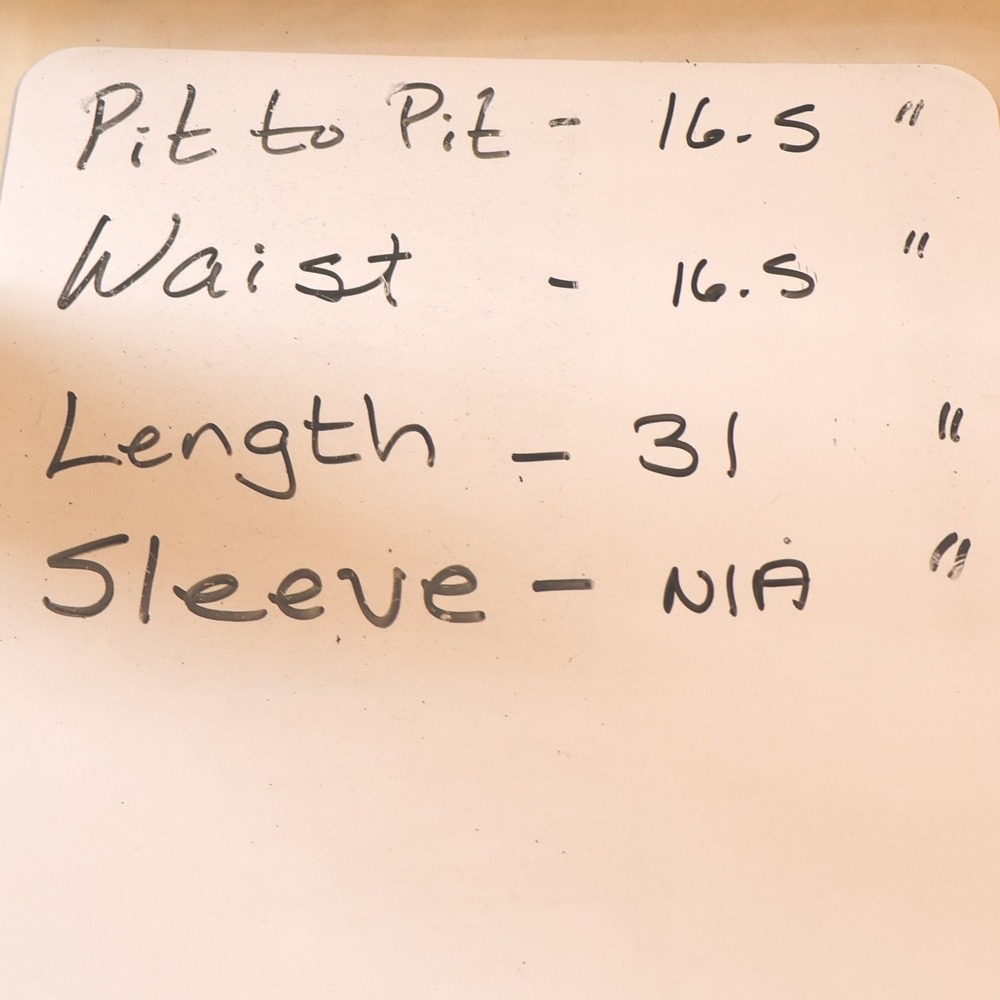 Pit to Pit - 16.5 "
Waist - 16.5 "
Length - 31 "
Sleeve - N/A "